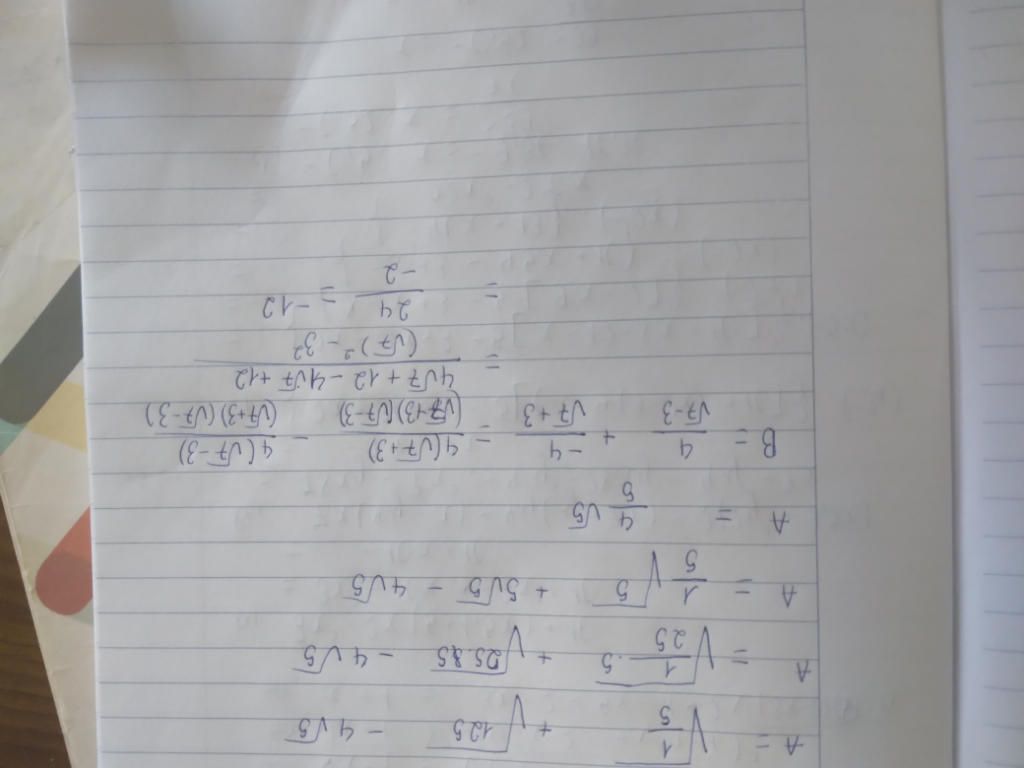 A = √(1/5) + √125 - 4√5
A = √(1/25 . 5) + √(25.85) - 4√5
A = 1/5 √5 + 5√5 - 4√5
A = 4/5 √5
B = 4/(√7-3) + -4/(√7+3) = 4(√7+3)/(√7+3)(√7-3) - 4(√7-3)/(√7+3)(√7-3)
= (4√7 + 12 - 4√7 + 12)/((√7)² - 3²)
= 24/-2 = -12